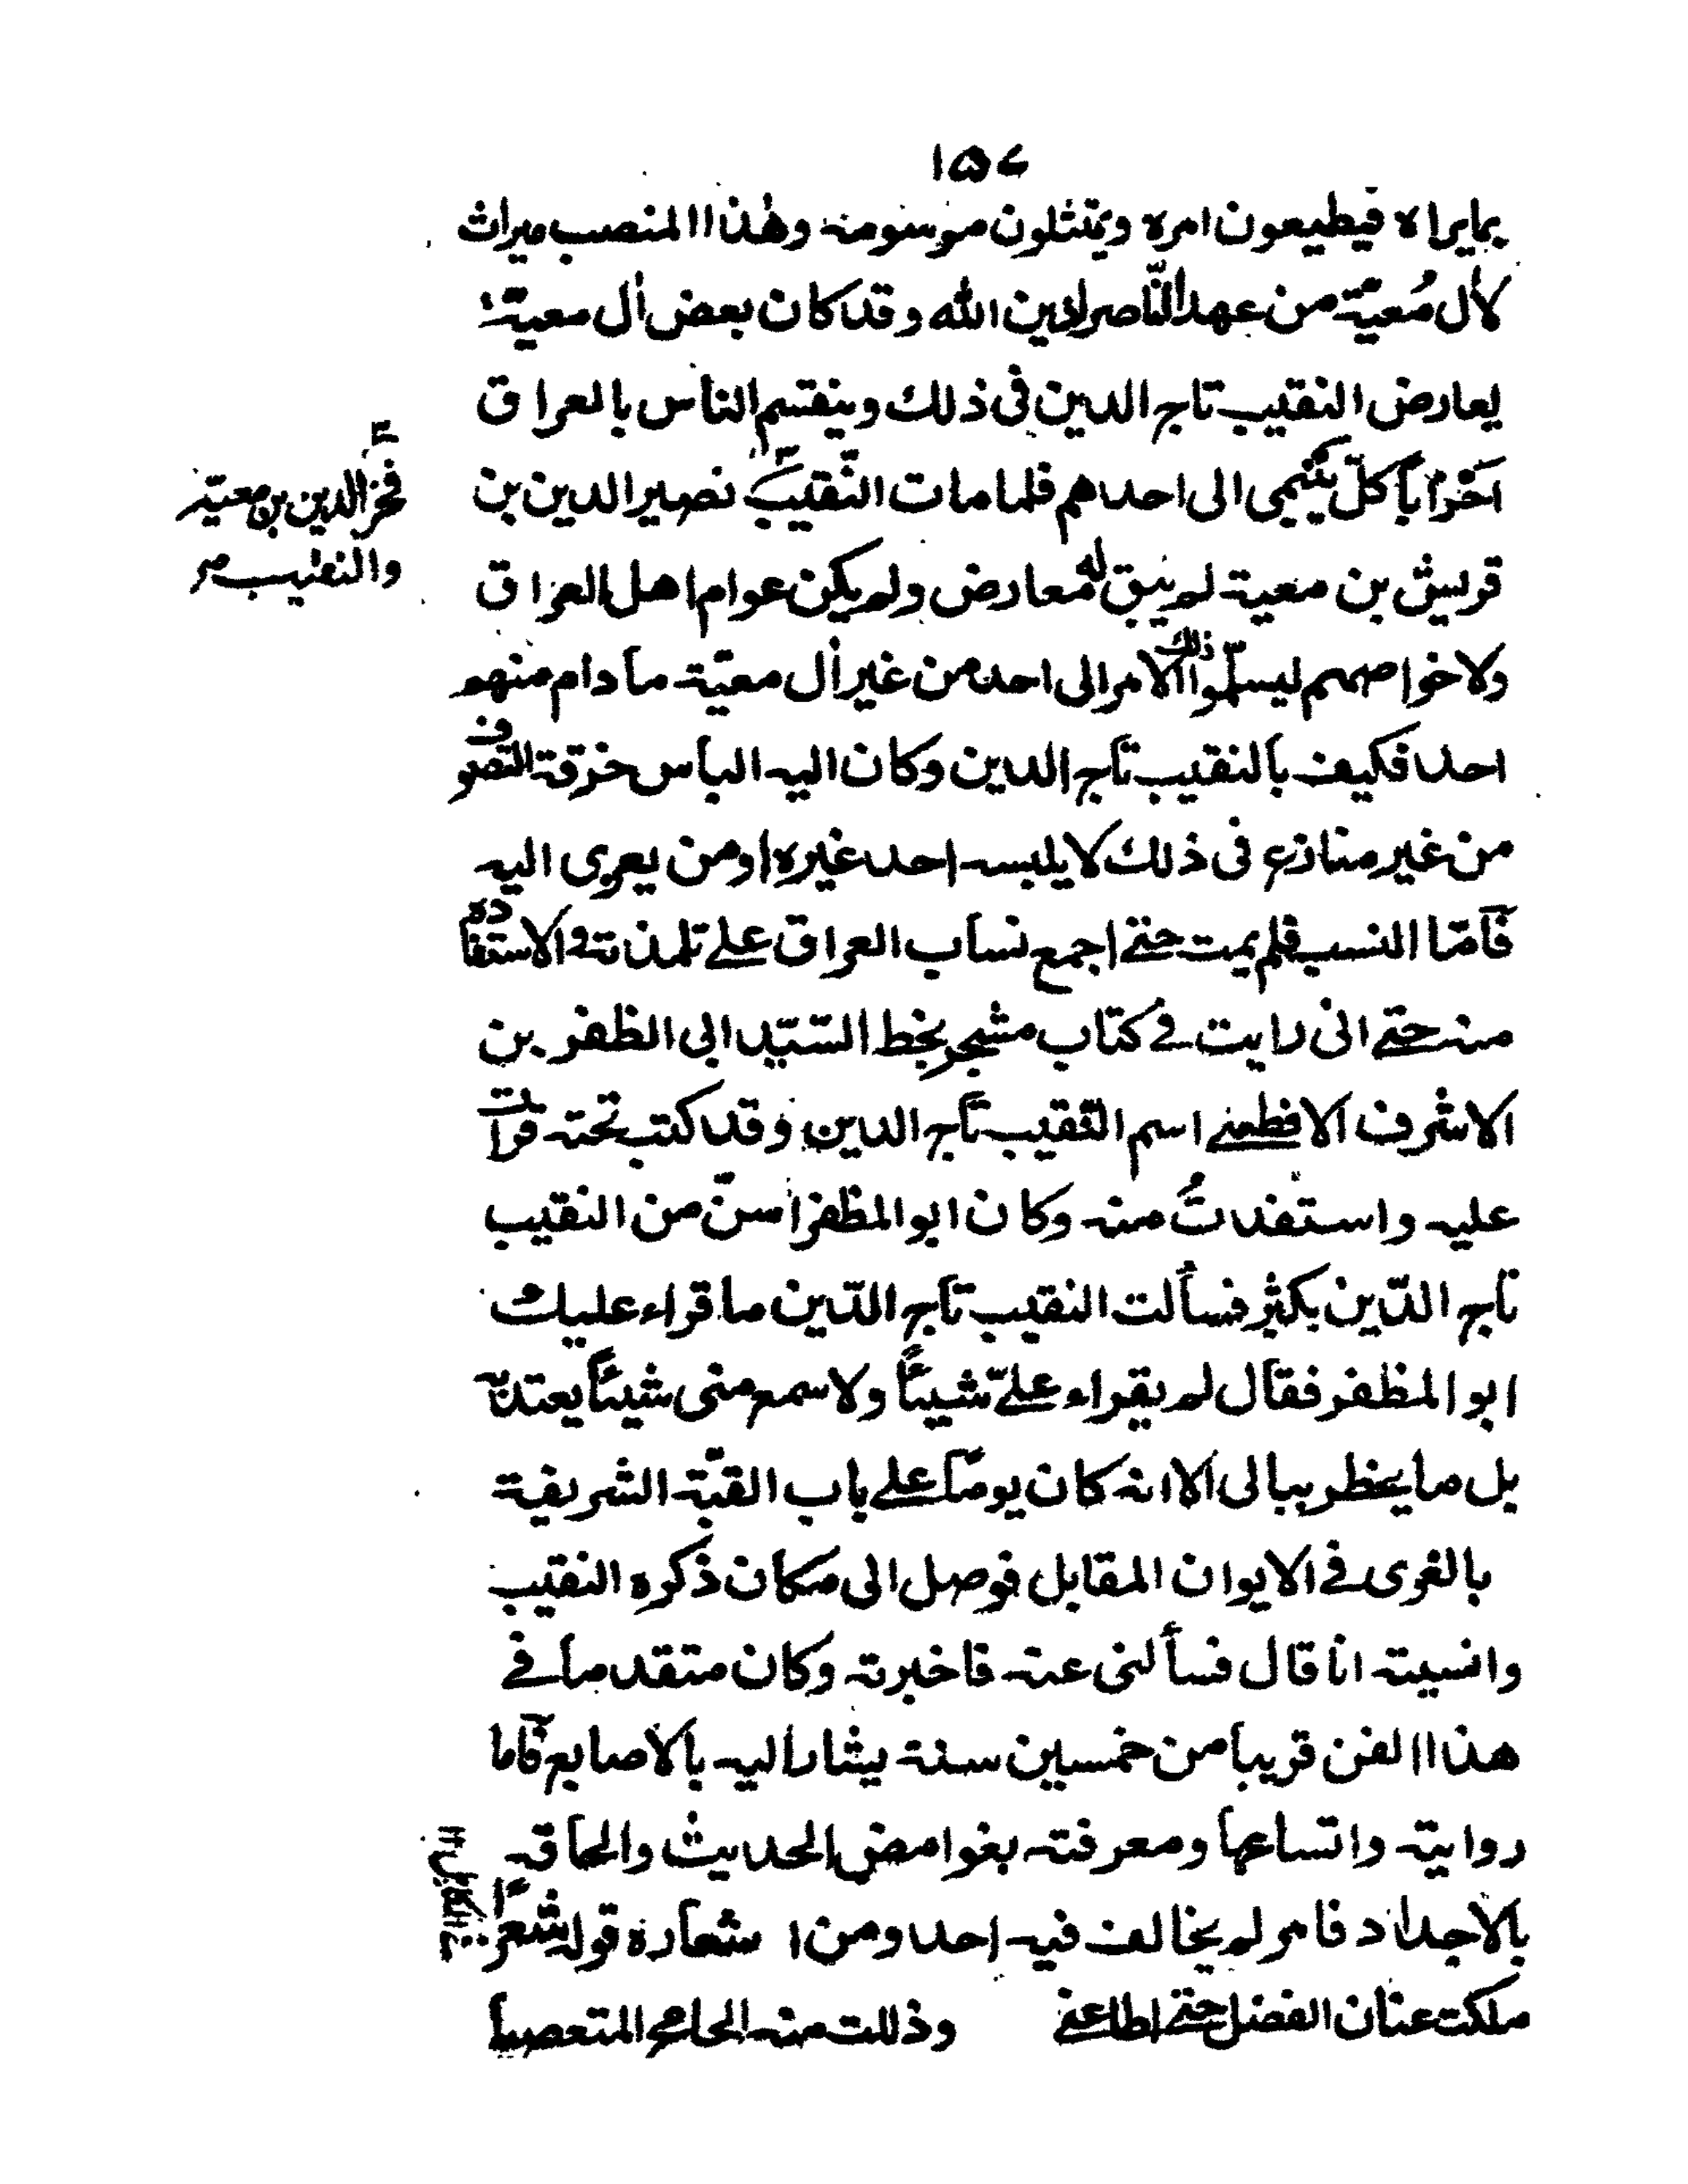 ١٥٧
بمايراه فيطيعون امره ويمتثلون مرسومه وهٰذا المنصب ميراث
لأل مُعيّة من عهد النّاصر لدين الله وقد كان بعض أل معيّة
يعارض النقيب تاج الدين فى ذلك وينقسم الناس بالعراق
احزاباً كلّ ينتمى الى احدهم فلما مات النّقيب نصير الدين بن
فخر الدين بن معيّة
والنقيب
قريش بن معية لم يبق له معارض ولم يكن عوام اهل العراق
ولاخواصهم ليسلّموا ذلك الامر الى احد من غير أل معيّة مادام منهم
احد فكيف بالنقيب تاج الدين وكان اليه الباس خرقة التصوف
من غير منازع فى ذلك لايلبسه احد غيره او من يعزى اليه
فآمّا النسب فلم يمت حتى اجمع نساب العراق على تلمذته والاستفاده
منه حتى انى رايت فى كتاب مشجر بخط السّيّد ابى الظفر بن
الاشرف الافطسى اسم النّقيب تاج الدين وقد كتب تحته قرات
عليه واستفدتُ منه وكان ابو المظفر اسنّ من النقيب
تاج الدّين بكثير فسألت النقيب تاج الدّين ما قراء عليك
ابو المظفر فقال لم يقراء علىّ شيئاً ولا سمع منى شيئاً يعتد به
بل ما يخطر ببالى الا انه كان يوماً على باب القبّة الشريفة
بالغرى فى الايوان المقابل فوصل الى مكان ذكره النقيب
وانسيته انا قال فسألنى عنه فاخبرته وكان متقدما فى
هذا الفن قريبا من خمسين سنة يشار اليه بالاصابع فآما
روايته واتساعها ومعرفته بغوامض الحديث والحاقه
بالاجداد فامر لم يخالف فيه احد ومن اشعاره قوله شعرا
ملكت عنان الفضل حتى اطاعنى وذللت منه الجامح المتعصبا